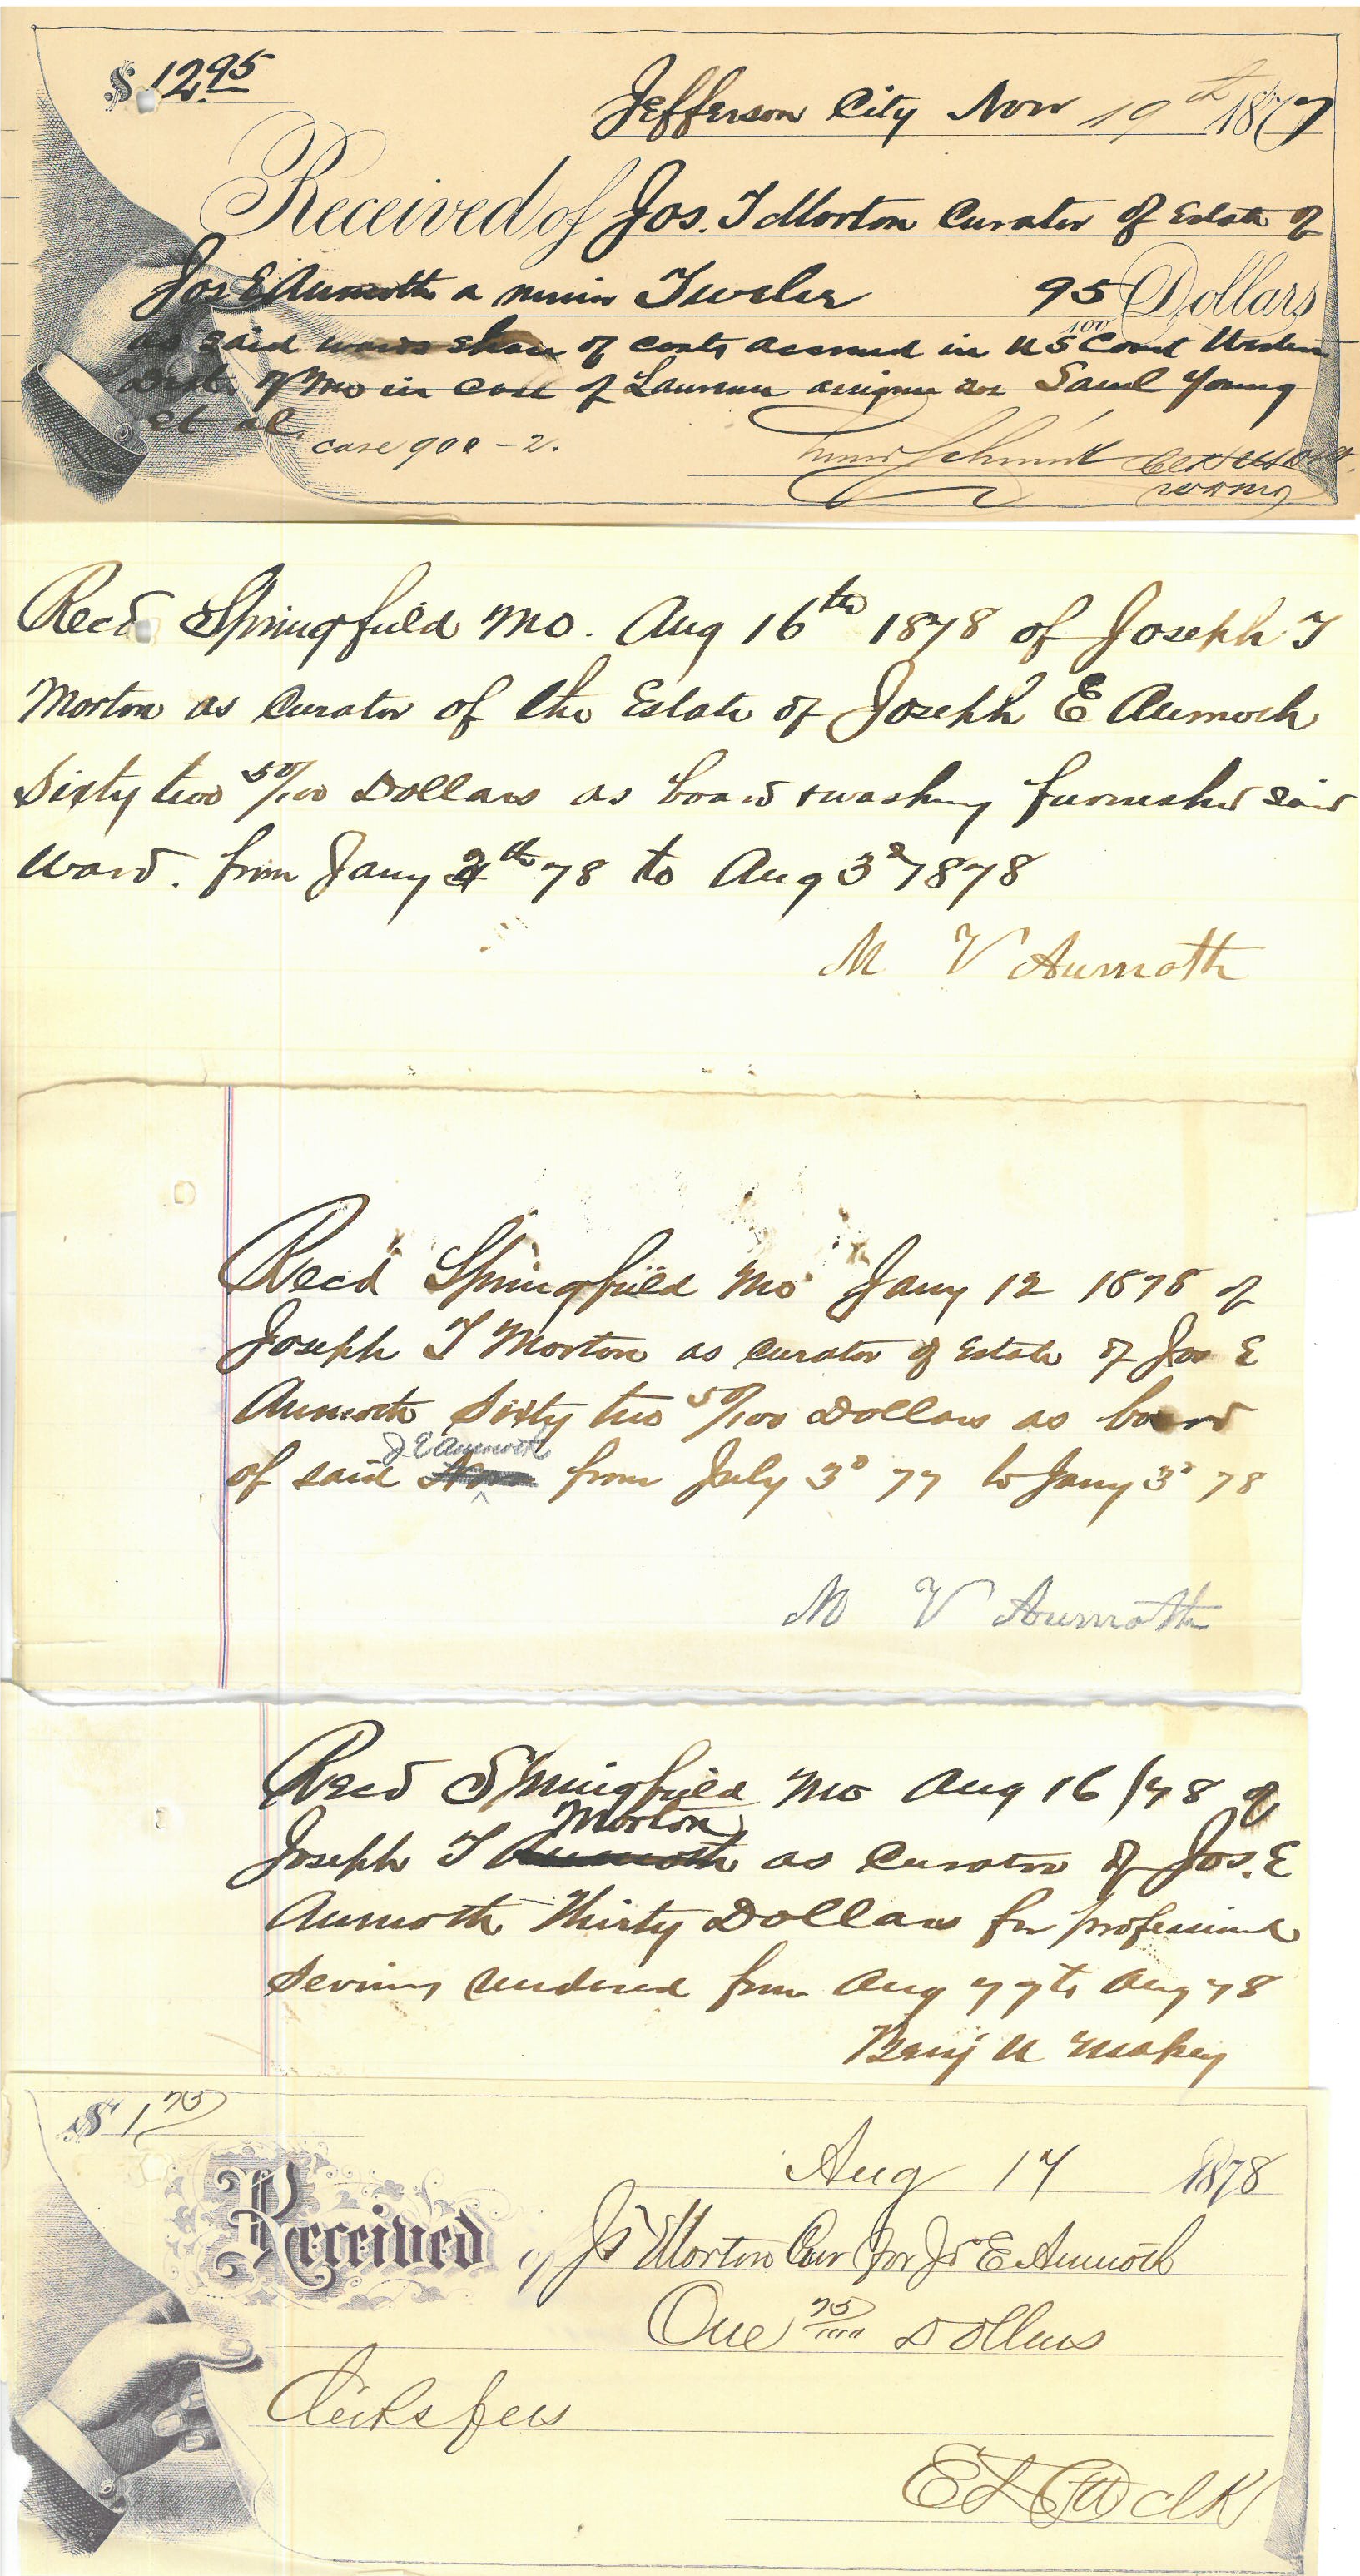 $ 12.95
Jefferson City Nov 19th 1877
Received of Jos. T Morton Curator of Estate of
Jos E Aumoth a minor Twelve 95/100 Dollars
as said wards share of costs accrued in US Court Western
Dist. of Mo in case of assignee Saml Young
et al.
case 900-2.
Schmidt
Recd Springfield Mo. Aug 16th 1878 of Joseph T
Morton as Curator of the Estate of Joseph E Aumoth
Sixty two 50/100 Dollars as board & washing furnished said
Ward. from Jany 4th 78 to Aug 3d 1878
M V Aumoth
Recd Springfield Mo Jany 12 1878 of
Joseph T Morton as Curator of Estate of Jos E
Aumoth Sixty two 50/100 Dollars as board
of said J E Aumoth from July 3d 77 to Jany 3d 78
M V Aumoth
Recd Springfield Mo Aug 16/78 of
Joseph T Morton as Curator of Jos. E
Aumoth Thirty Dollars for professional
Services rendered from Aug 77 to Aug 78
Benj U Massey
$ 1 75
Aug 17 1878
Received of Js Morton Cur for Js E Aumoth
One 75/100 Dollars
Clerks fees
Clk